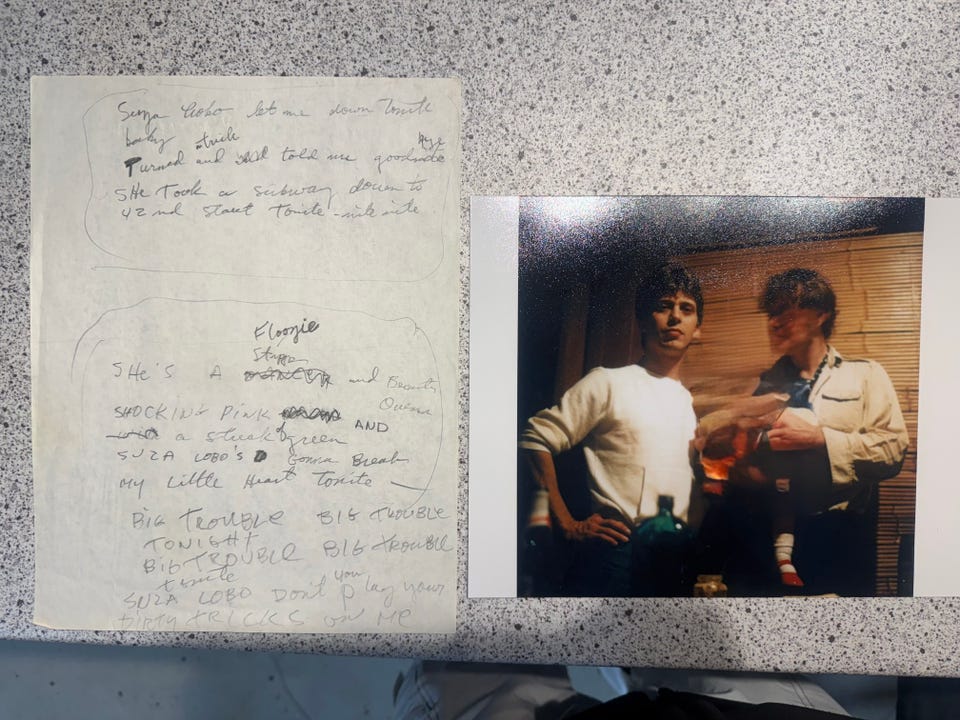 Suza Lobo let me down Tonite
baby
Turned and told me goodnite
SHe Took a subway down to
42nd Tonite - nite nite
Floozie
SHe's A and Beauty
Queen
SHOCKING PINK AND
a streak of green
SUZA LOBO'S gonna Break
My Little Heart Tonite
BIG TROUBLE BIG TROUBLE
TONIGHT
BIG TROUBLE BIG TROUBLE
tonite
SUZA LOBO Don't you play your
DIRTY TRICKS ON ME